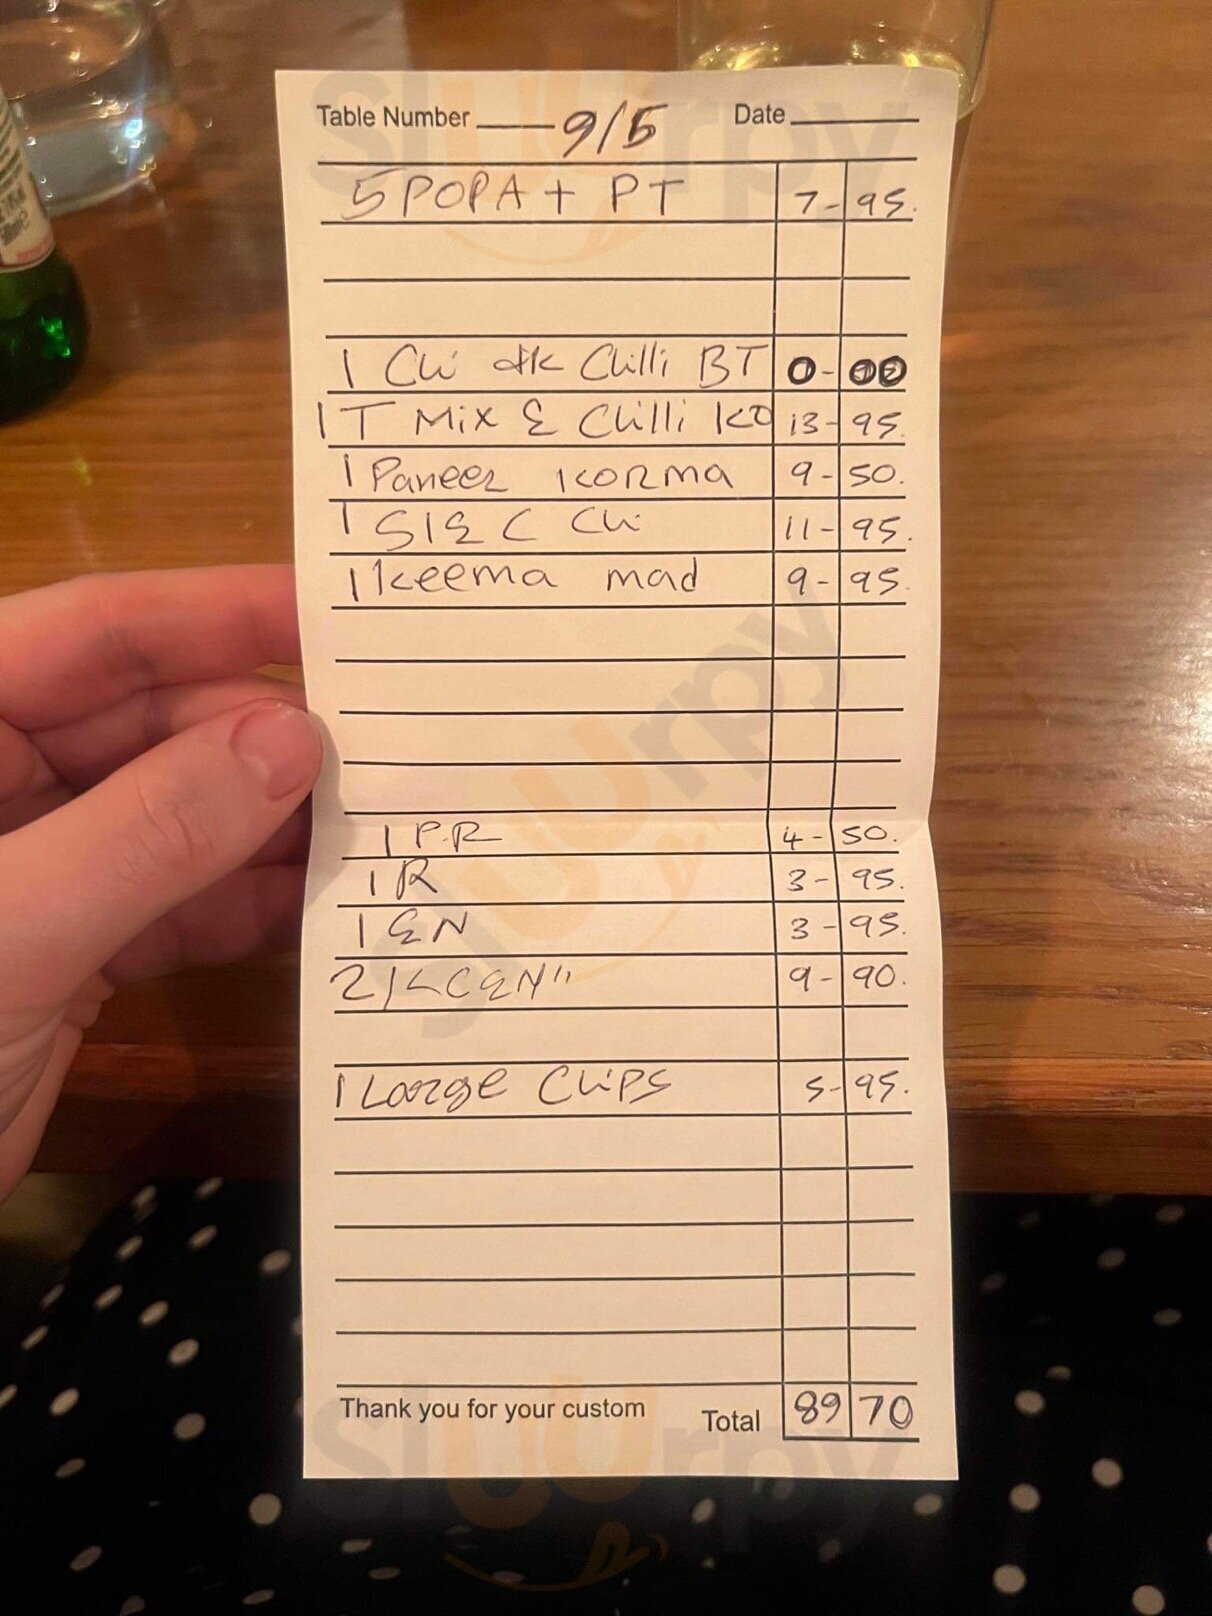 Table Number 9/5 Date
5 POPA + PT 7-95.
1 Ch dk Chilli BT 0-00
1 T Mix & Chilli KO 13-95.
1 Paneer Korma 9-50.
1 S1 & C Ch 11-95.
1 Keema mad 9-95.
1 P.R 4-50.
1 R 3-95.
1 EN 3-95.
2 9-90.
1 Large Chips 5-95.
Thank you for your custom Total 89 70
sluurpy
sluurpy
sluurpy